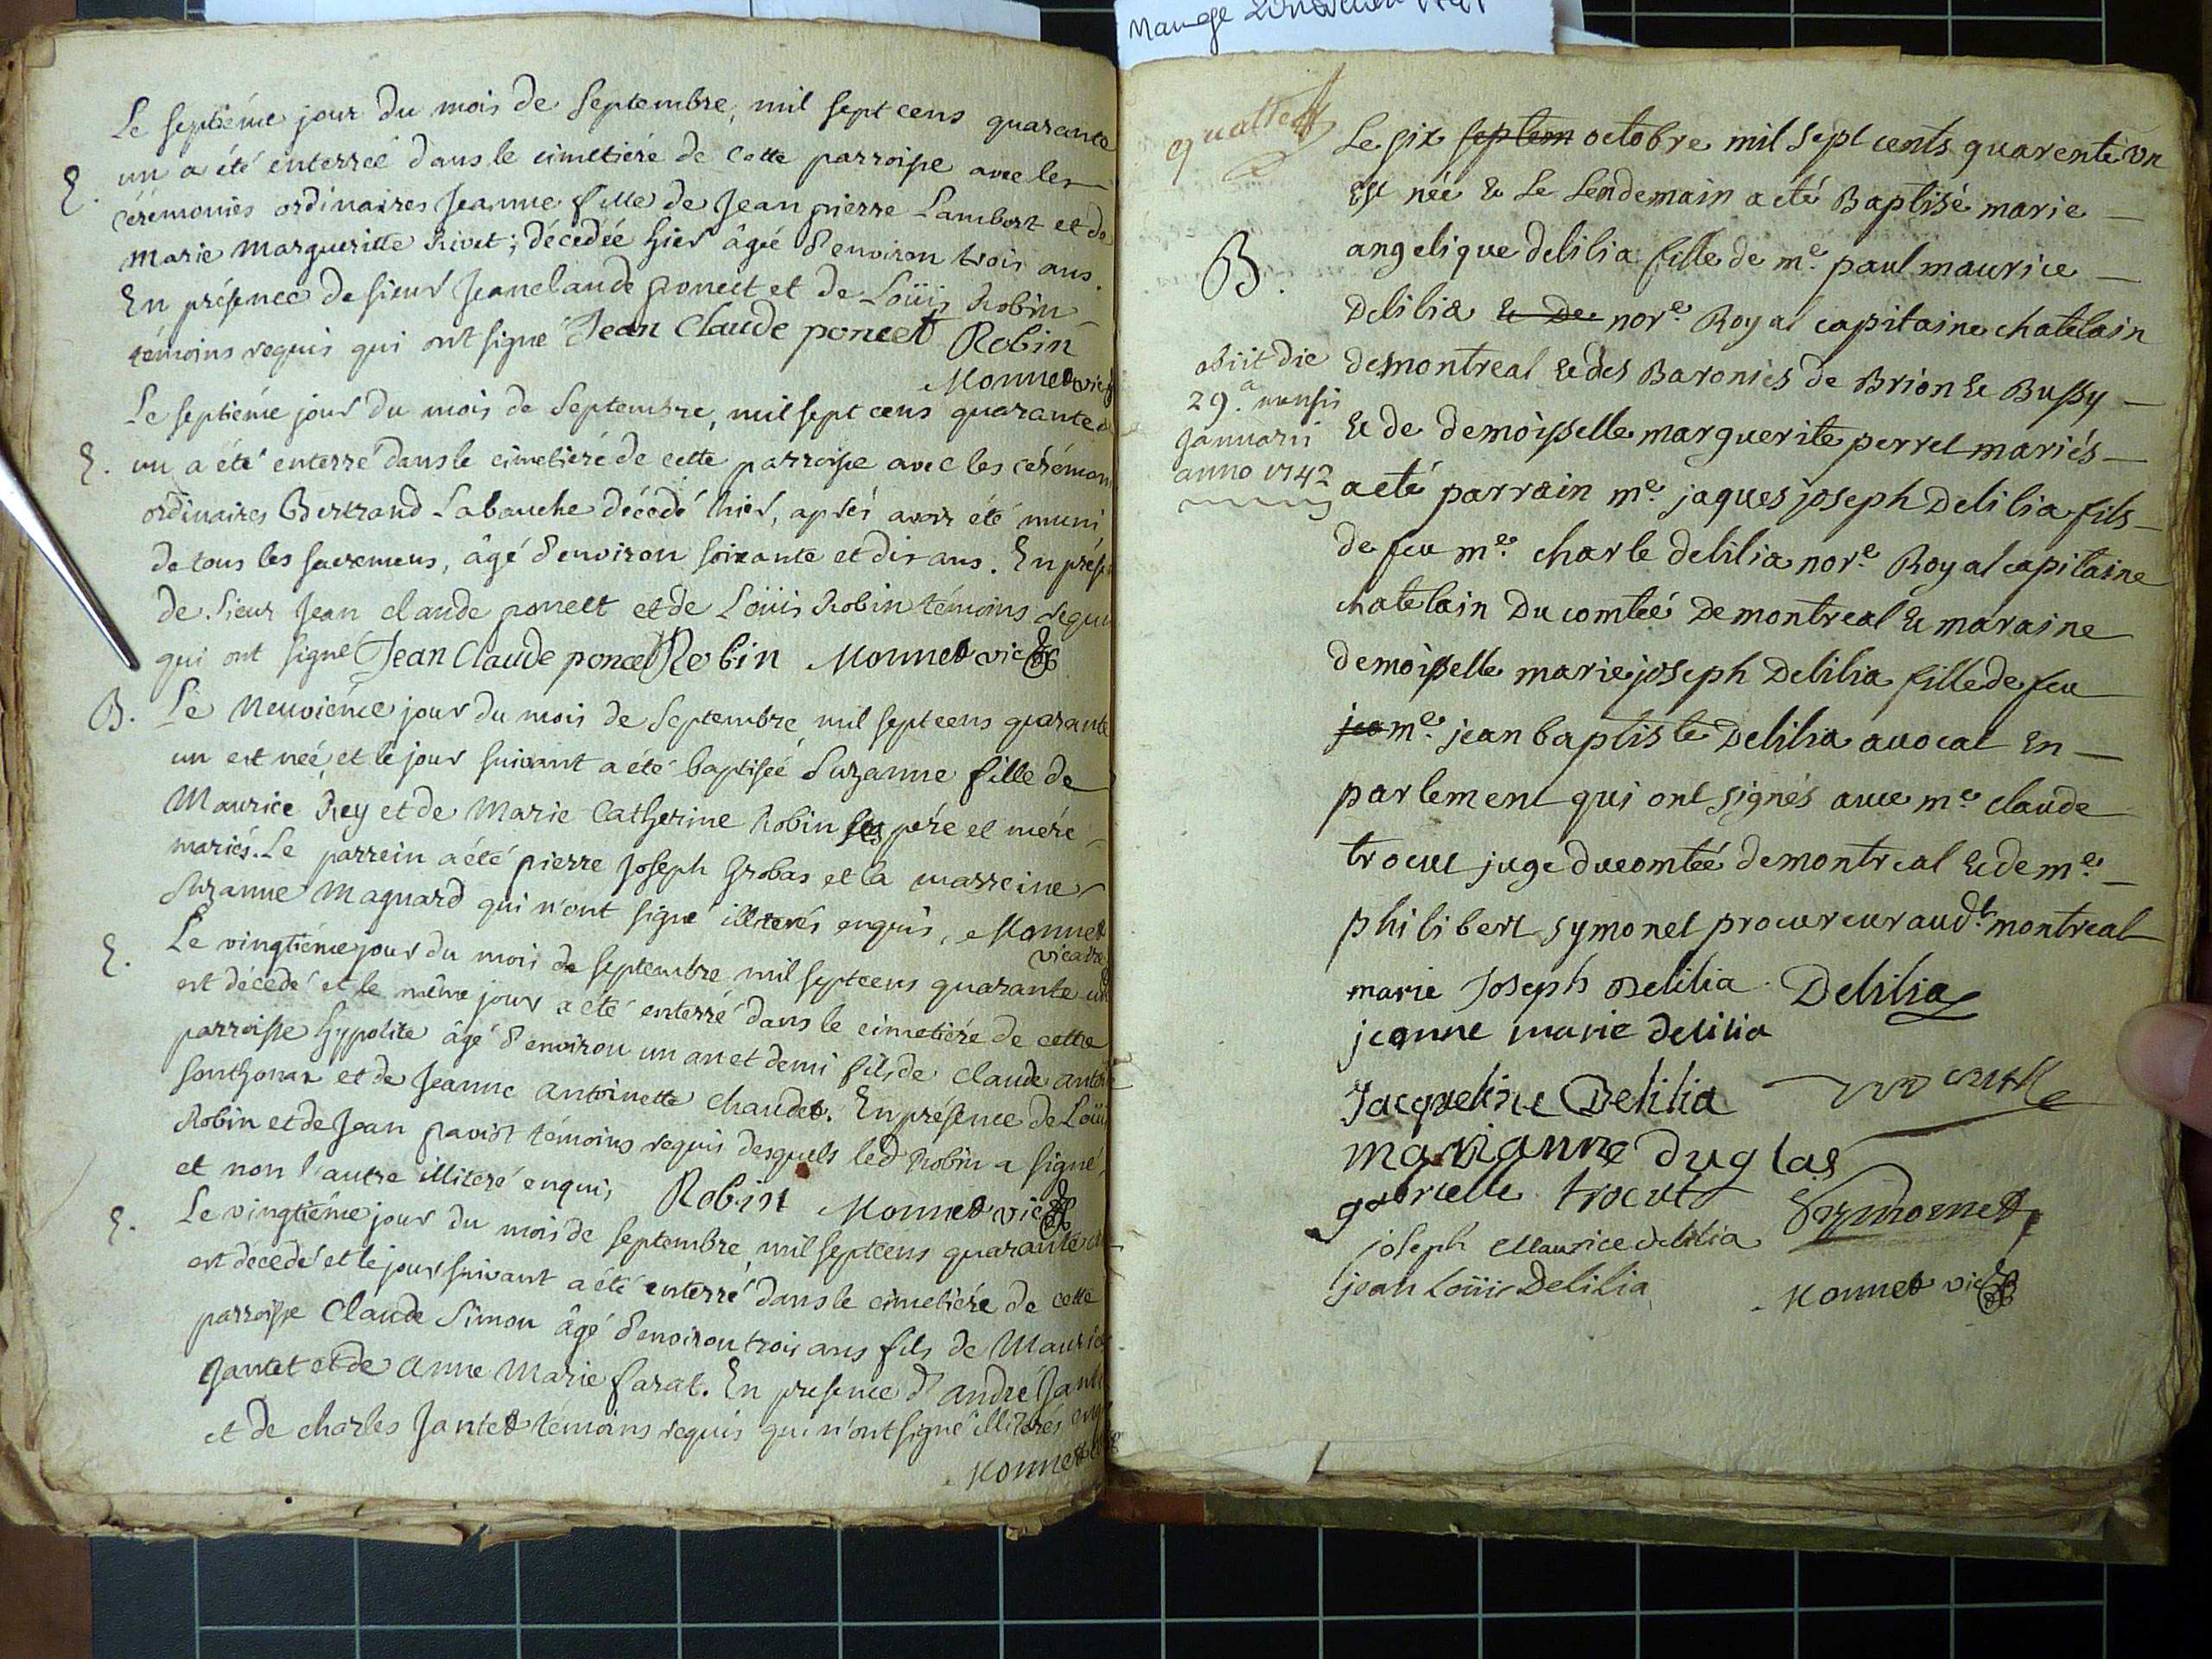 Mariage 20
Le septiéme jour du mois de Septembre, mil sept cens quarante
E. un a été enterreé dans le cimetiére de cette parroisse avec les
cérémonies ordinaires Jeanne fille de Jean pierre Lambert et de
Marie Margueritte Rivet; décédée hier âgée d'environ trois ans.
En présence de sieur Jean claude poncet et de Loüis Robin
témoins requis qui ont signé Jean Claude poncet Robin
Monnet vic
Le septiéme jour du mois de Septembre, mil sept cens quarante
E. un a été enterré dans le cimetiére de cette parroisse avec les cérémon
ordinaires Bertrand Labauche décédé hier, aprés avoir été muni
de tous les sacremens, âgé d'environ soixante et dix ans. En prése
de Sieur Jean claude poncet et de Loüis Robin témoins requi
qui ont signé Jean Claude poncet Robin Monnet vic
B. Le Neuviéme jour du mois de Septembre mil sept cens quarante
un est neé et le jour suivant a été baptiseé Suzanne fille de
Maurice Rey et de Marie Catherine Robin ses pére et mere
mariés. Le parrein a été pierre Joseph Grobas et la marreine
Suzanne Magnard qui n'ont signé illiterés enquis, Monnet
vicaire
E. Le vingtiéme jour du mois de Septembre mil sept cens quarante un
est décédé et le même jour a été enterré dans le cimetiére de cette
parroisse hyppolite âgé d'environ un an et demi fils de Claude antoi
Sonthonax et de Jeanne antoinette Chaudet. En présence de Loüi
Robin et de Jean pavist témoins requis desquels led Robin a signé,
et non l'autre illiteré enquis Robin Monnet vic
E. Le vingtiéme jour du mois de Septembre, mil sept cens quarante
est décédé et le jour suivant a été enterré dans le cimetiére de cette
parroisse Claude Simon âgé d'environ trois ans fils de Mauric
Jantet et de Anne Marie farat. En presence d'andré Jant
et de charles Jantet témoins requis qui n'ont signé illiterés enq
Monnet
quatter
Le six septem octobre mil sept cents quarente un
Est née & Le Lendemain a eté Baptisé marie
B. angelique delilia fille de me. paul maurice
Delilia & De nore. Royal capitaine chatelain
obiit die
29.a mensis
Januarii
anno 1742
de montreal & des Baronies de Brion & Bussy
& de demoisselle marguerite perret mariés
a eté parrain me. jaques joseph Delilia fils
de feu me. charle delilia nore. Royal capitaine
chatelain Du comteé De montreal & maraine
demoisselle marie joseph Delilia fille de feu
jea me. jean baptiste Delilia auocat En
parlement qui ont signés auec me. claude
trocut juge du comteé de montreal & de me.
philibert symonet procureur audt. montreal
marie Joseph Delilia Delilia
jeanne marie delilia
Jacqueline Delilia trocut
marianne duglas
gabrielle trocut Symonet
joseph Maurice delilia
jean loüis Delilia Monnet vic